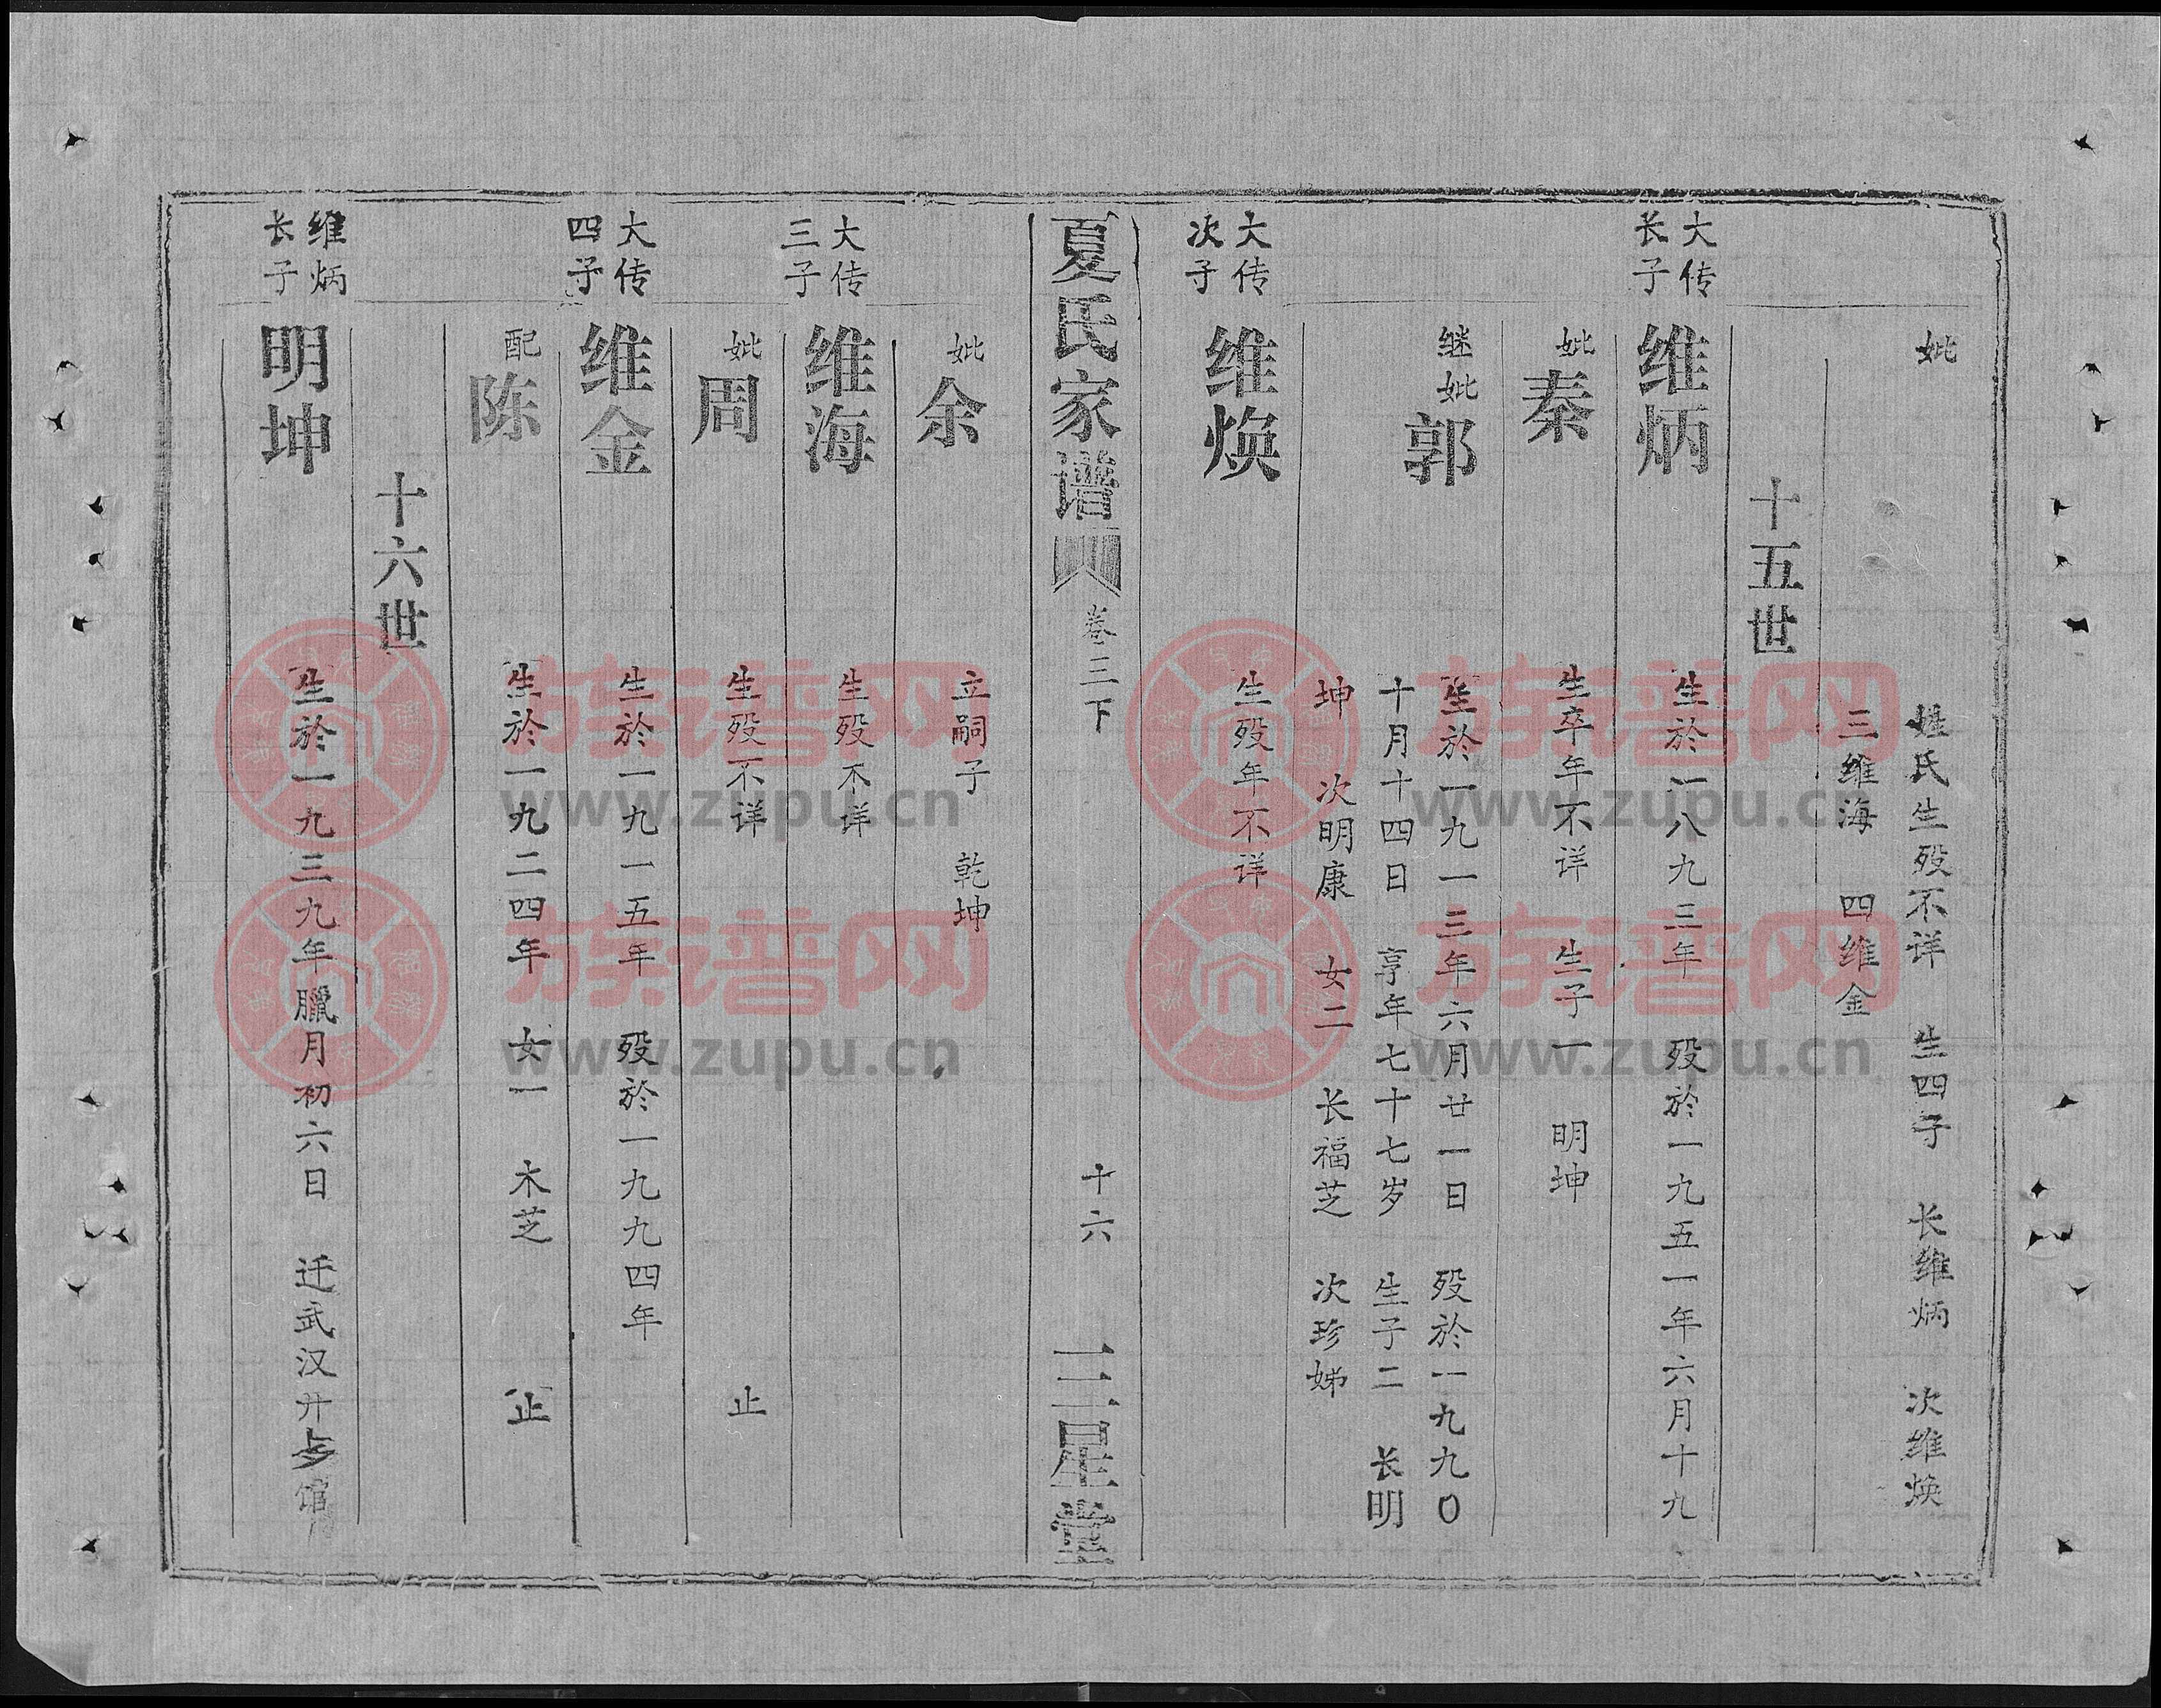 妣
姓氏生殁不详 生四子 长维炳 次维焕
三维海 四维金
十五世
大传
长子
维炳
生於一八九三年 殁於一九五一年六月十九
妣秦
生卒年不详 生子一 明坤
继妣郭
生於一九一三年六月廿一日 殁於一九九〇
十月十四日 亨年七十七岁 生子二 长明
坤 次明康 女二 长福芝 次珍娣
大传
次子
维焕
生殁年不详
夏氏家谱 卷三下 十六 三星堂
妣余
立嗣子 乾坤
大传
三子
维海
生殁不详
妣周
生殁不详 止
大传
四子
维金
生於一九一五年 殁於一九九四年
配陈
生於一九二四年 女一 木芝 止
十六世
维炳
长子
明坤
生於一九三九年臘月初六日 迁武汉 馆
族谱网
www.zupu.cn
族谱网
www.zupu.cn
族谱网
www.zupu.cn
族谱网
www.zupu.cn